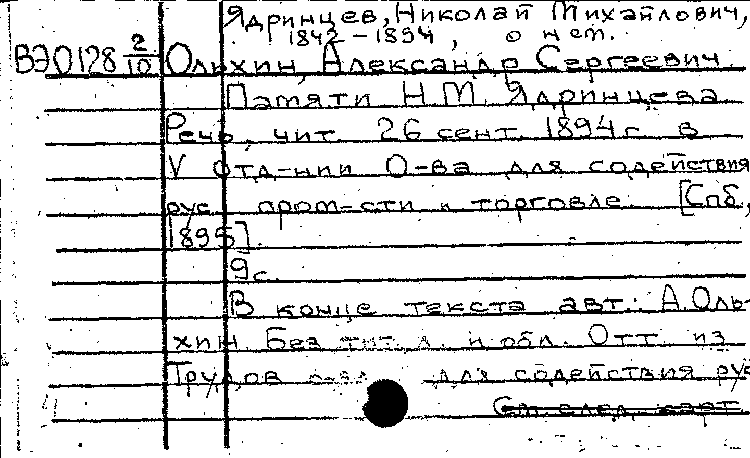 Ядринцев, Николай Михайлович,
1842-1894, о нем.
ВЭ0128 2/10 Ольхин, Александр Сергеевич.
Памяти Н.М. Ядринцева
Речь, чит. 26 сент. 1894 г. в
V отд-нии О-ва для содействия
рус. пром-сти и торговле. [Спб.,
1895].
9с.
В конце текста авт.: А.Оль-
хин. Без тит. л. и обл. Отт. из
Трудов для содействия рус
См. след. карт.